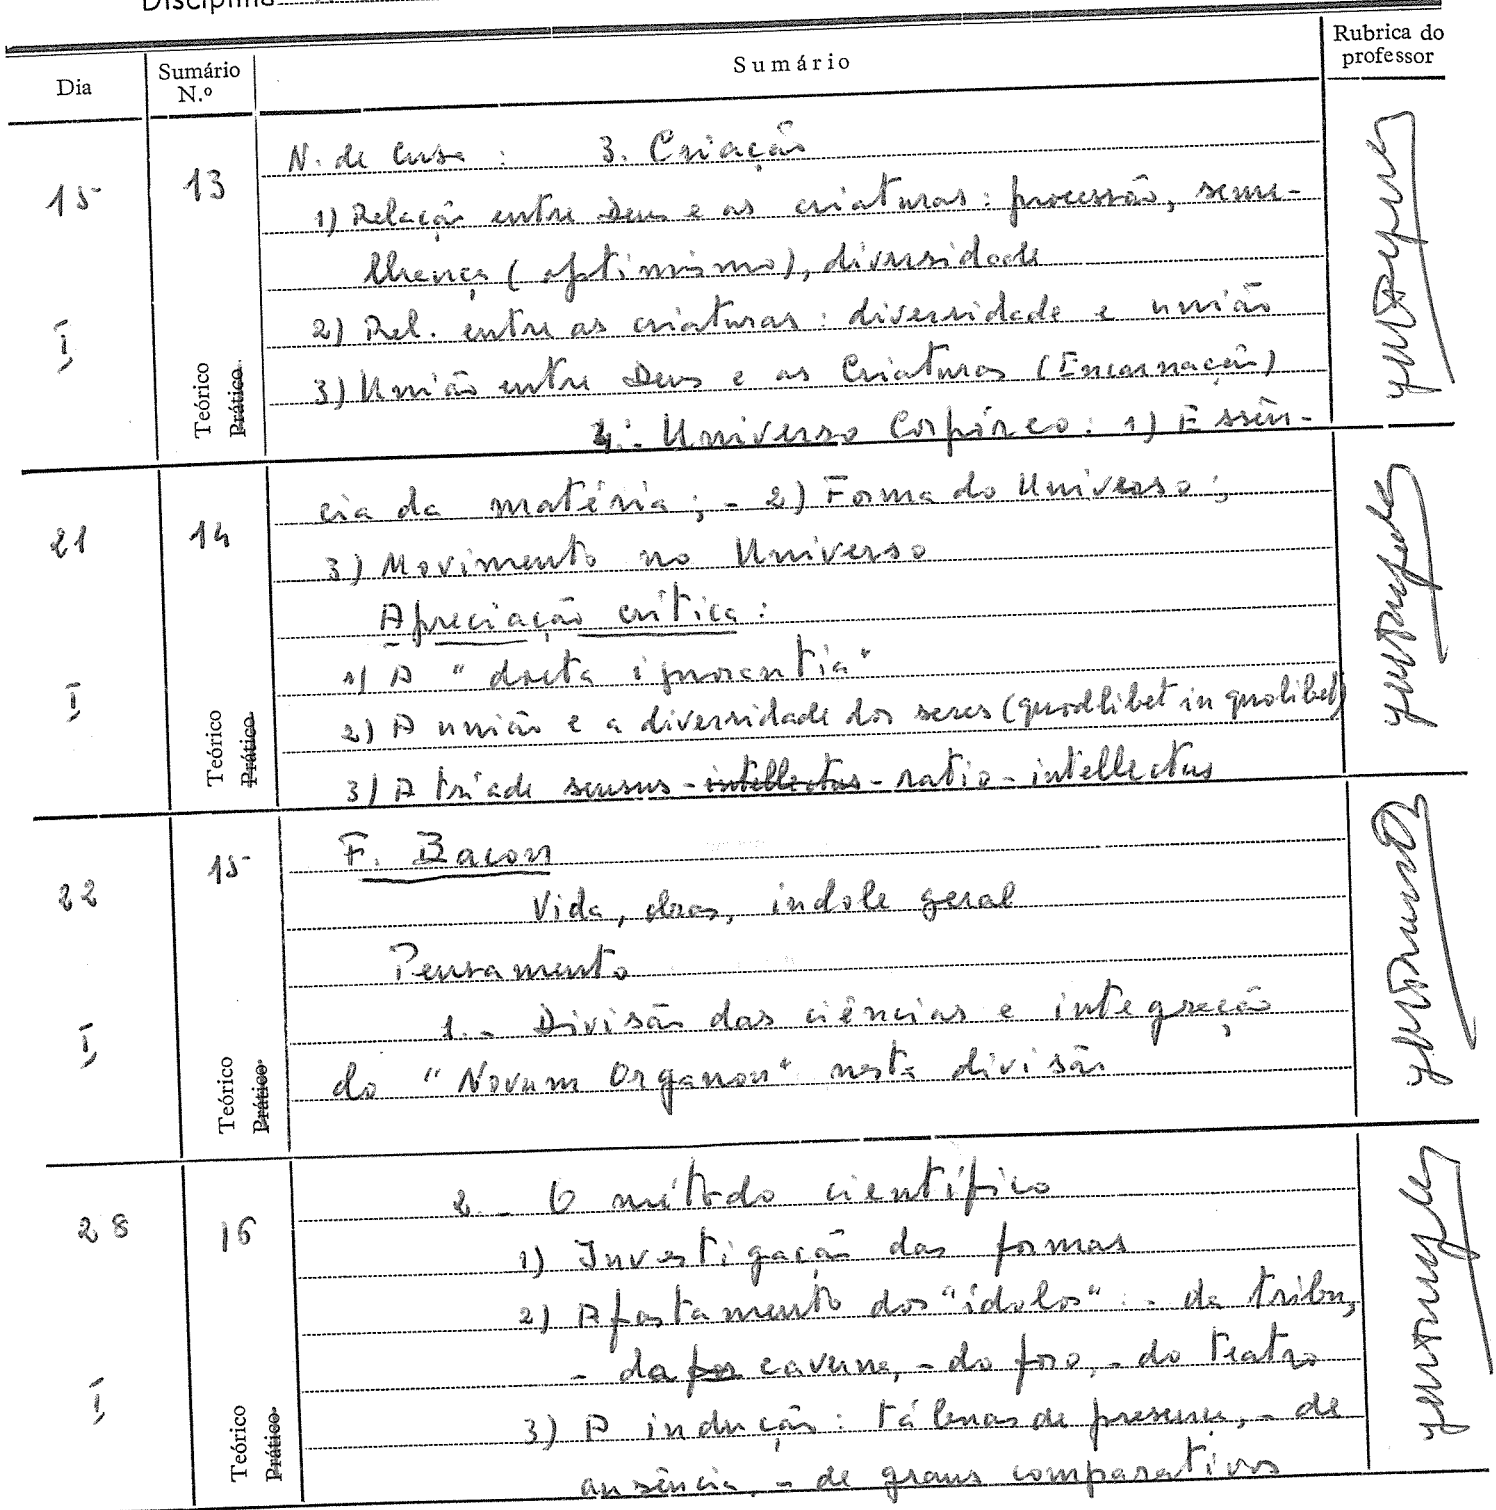 Disciplina
Dia
Sumário N.º
Sumário
Rubrica do professor
15
I
13
Teórico
Prático
N. de Cusa : 3. Criação
1) Relação entre Deus e as criaturas : processão, seme-
lhança (optimismo), diversidade
2) Rel. entre as criaturas : diversidade e união
3) União entre Deus e as Criaturas (Encarnação)
4.- Universo Corpóreo : 1) Essên-
21
I
14
Teórico
Prático
cia da matéria ; - 2) Forma do Universo ;
3) Movimento no Universo
Apreciação crítica :
1) A "docta ignorantia"
2) A união e a diversidade dos seres (quodlibet in quolibet)
3) A tríade sensus - intellectus - ratio - intellectus
22
I
15
Teórico
Prático
F. Bacon
Vida, obras, índole geral
Pensamento
1. - Divisão das ciências e integração
do "Novum Organon" nesta divisão
28
I
16
Teórico
Prático
2. - O método científico
1) Investigação das formas
2) Afastamento dos "ídolos" : - da tribu,
- da caverna, - do foro, - do teatro
3) A indução : tábuas de presença, - de
ausência, - de graus comparativos